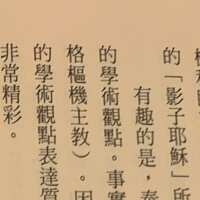 的「影子耶穌」所
有趣的是，秦
的學術觀點。事實
格樞機主教）。因
的學術觀點表達質
非常精彩。